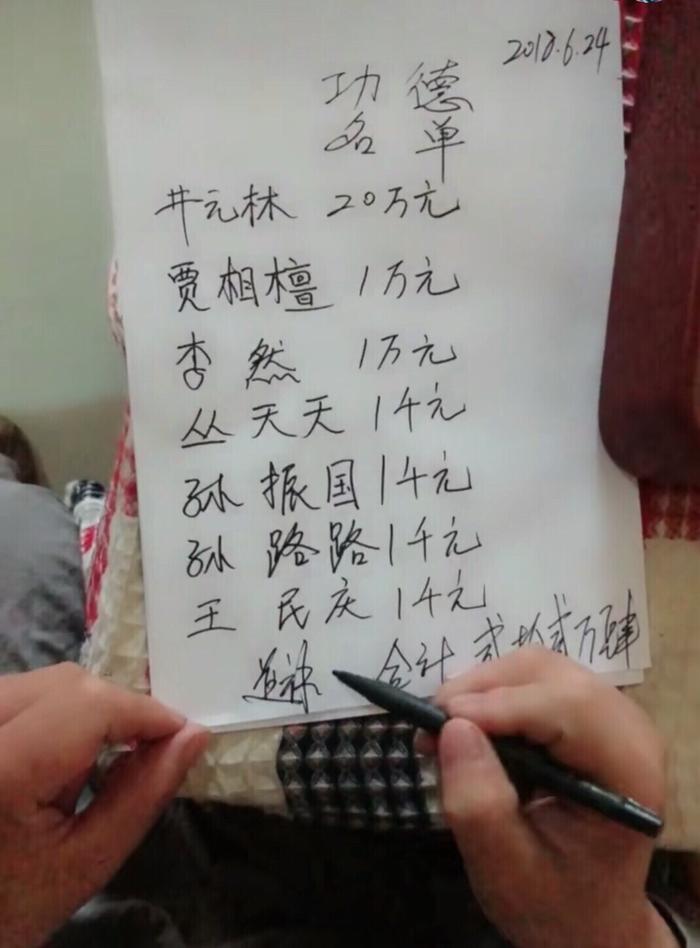 2018.6.24
功德
名单
井元林 20万元
贾相檀 1万元
李然 1万元
丛天天 1千元
孙振国 1千元
孙路路 1千元
王民庆 1千元
合计 贰拾贰万肆